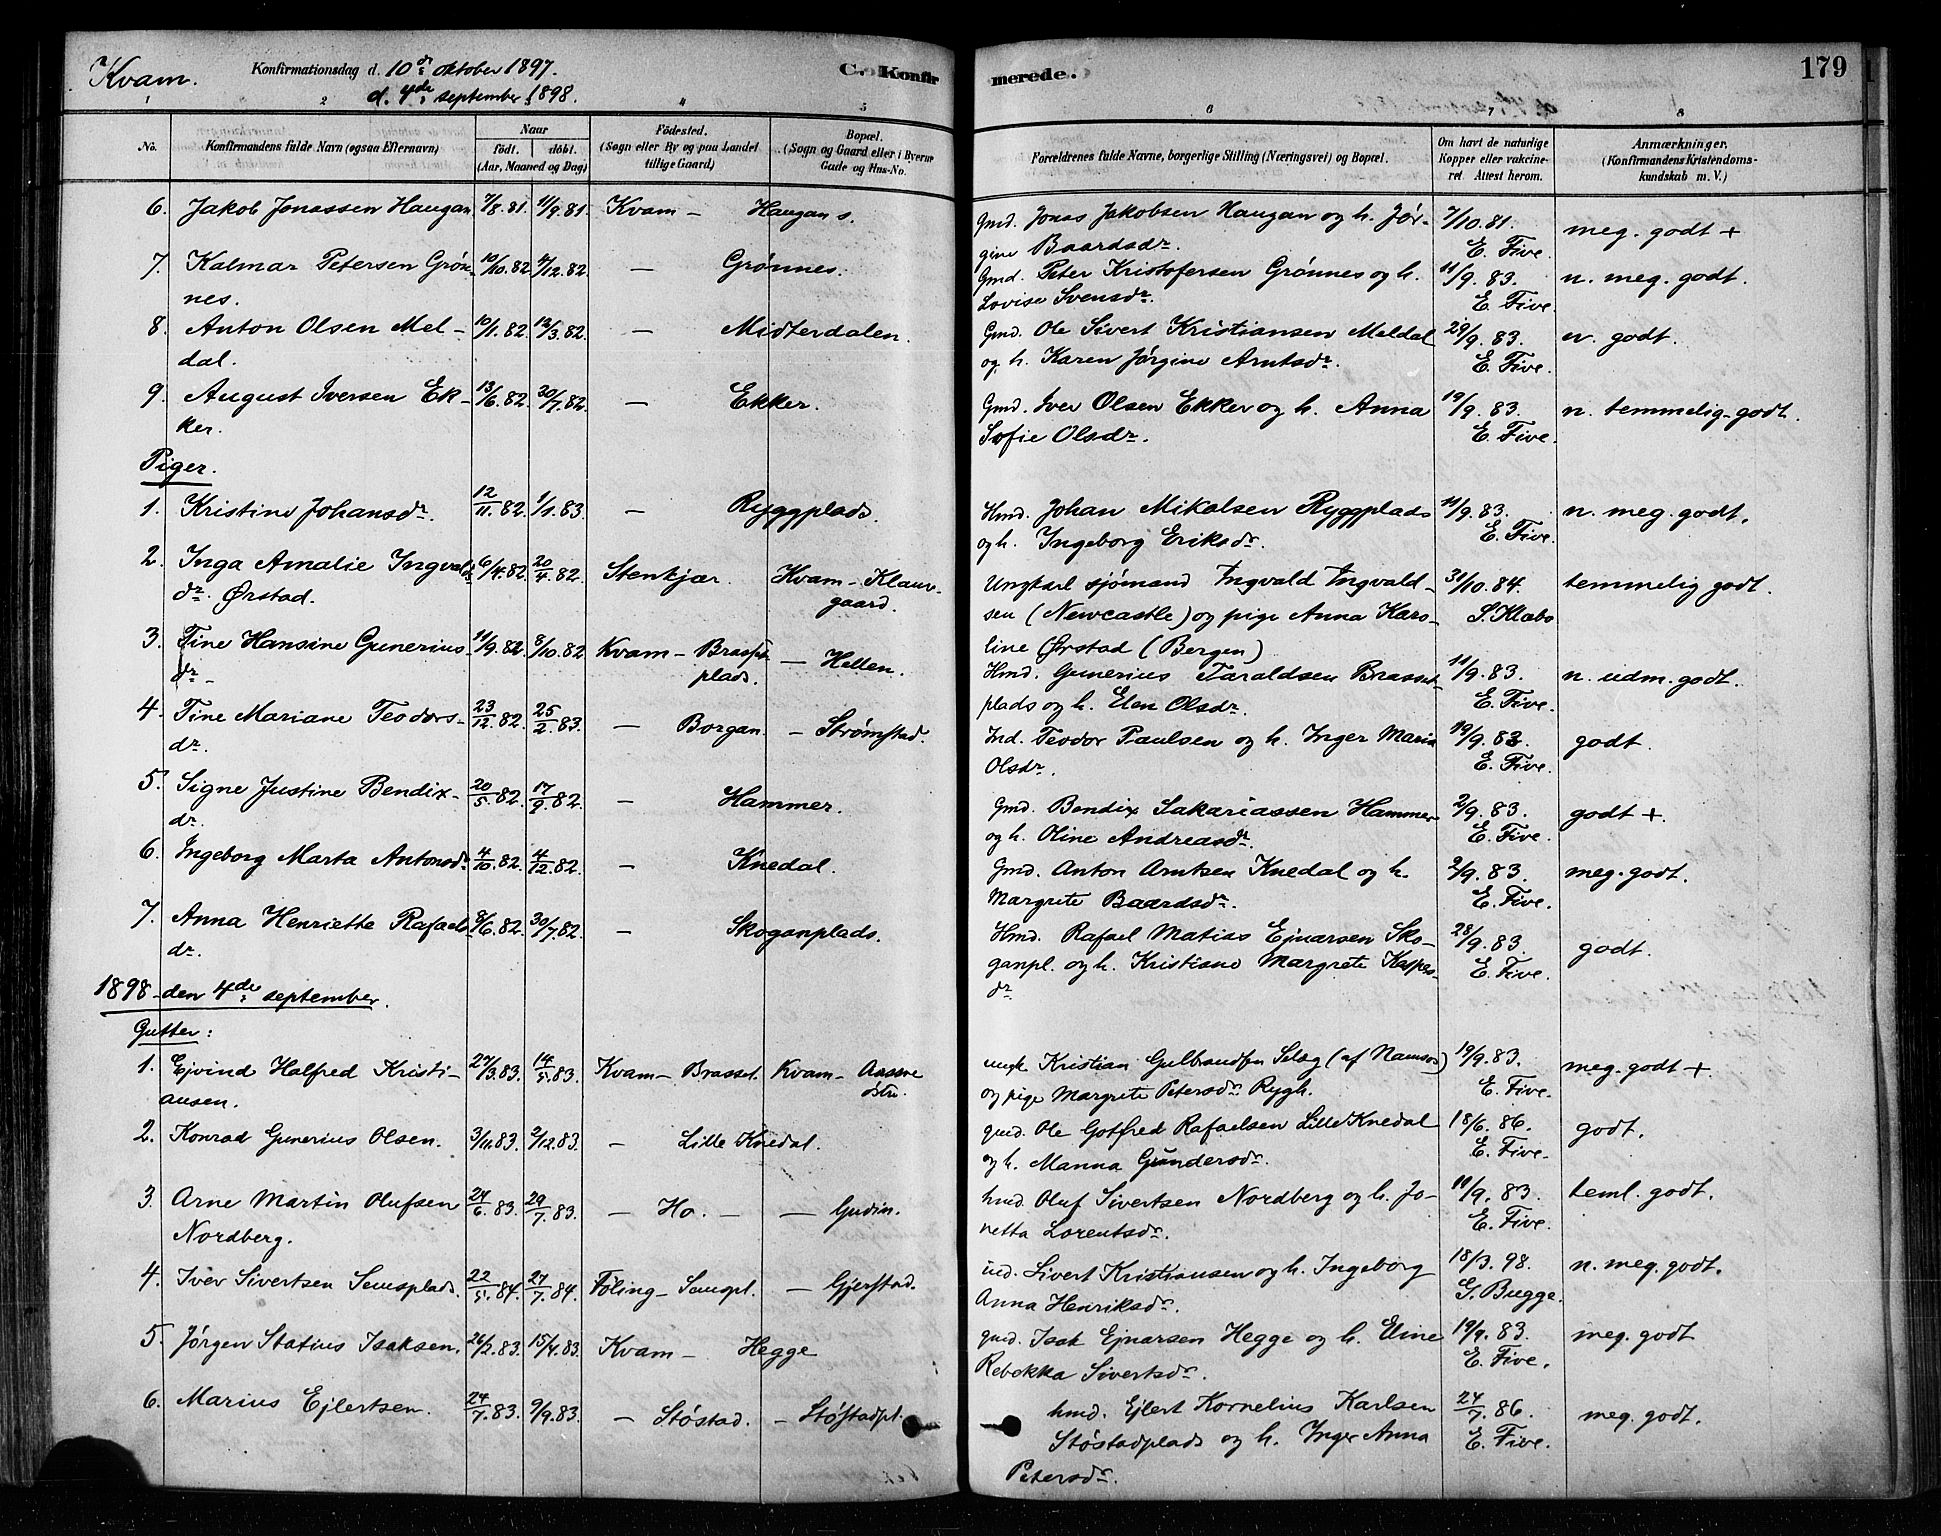 Kvam. Konfirmationsdag d. 10de oktober 1897. C. Konfirmerede. 179
d. 4de september 1898.
1 2 3 4 5 6 7 8
No. Konfirmandens fulde Navn (ogsaa Efternavn) Naar født. døbt. (Aar, Maaned og Dag) Fødested. (Sogn eller By og paa Landet tillige Gaard.) Bopæl. (Sogn og Gaard eller i Byerne Gade og Hus-No. Forældrenes fulde Navne, borgerlige Stilling (Næringsvei) og Bopæl. Om havt de naturlige Kopper eller vakcineret. Attest herom. Anmærkninger, (Konfirmandens Kristendomskundskab m. V.)
6. Jakob Jonassen Haugan 7/8.81 11/9.81 Kvam – Haugan s. Gmd. Jonas Jakobsen Haugan og h. Jør- 7/10.81. meg. godt +
gine Baardsdr. E. Five.
7. Kalmar Petersen Grøn- 10/10.82 4/12.82 – Grønnes. Gmd. Peter Kristofersen Grønnes og h. 11/9.83. n. meg. godt.
nes. Lovise Svensdr. E. Five.
8. Anton Olsen Mel- 10/1.82 12/3.82. – Midterdalen. Gmd. Ole Sivert Kristiansen Meldal 29/9.83. n. godt.
dal. og h. Karen Jørgine Arntsdr. E. Five.
9. August Iversen Ek- 13/6.82. 30/7.82. – Ekker. Gmd. Iver Olsen Ekker og h. Anna 19/9.83. n. temmelig godt.
ker. Sofie Olsdr. E. Five.
Piger.
1. Kristine Johansdr. 12/11.82. 1/1.83 – Ryggplads. Hmd. Johan Mikalsen Ryggplads 11/9.83. n. meg. godt.
og h. Ingeborg Eriksdr. E. Five.
2. Inga Amalie Ingvalds- 6/4.82 20/4.82. Stenkjær. Kvam – Klauv- Ungkarl sjømand Ingvald Ingvald- 31/10.84. temmelig godt.
dr. Ørstad. gaard. sen (Newcastle) og pige Anna Karo- S. Klæbo
3. Tine Hansine Gunerius- 11/9.82. 8/10.82 Kvam – Brasset – Hellen. line Ørstad (Bergen)
dr. plads. Hmd. Gunerius Taraldsen Brasset- 11/9.83. n. udm. godt.
4. Tine Mariane Teodors- 23/12.82. 25/2.83. – Borgan. – Strømstad. plads og h. Elen Olsdr. E. Five.
dr. Ind. Teodor Paulsen og h. Inger Maria 19/9.83. godt.
Olsdr. E. Five.
5. Signe Justine Bendix- 20/5.82. 17/9.82. – Hammer. Gmd. Bendix Sakariassen Hammer 2/9.83. godt +.
dr. og h. Oline Andreasdr. E. Five.
6. Ingeborg Marta Antonsdr. 4/10.82. 4/12.82. – Knedal. Gmd. Anton Arntsen Knedal og h. 2/9.83. meg. godt.
Margrete Baardsdr. E. Five.
7. Anna Henriette Rafaels- 8/6.82. 30/7.82. – Skoganplads. Hmd. Rafael Matias Ejnarsen Sko- 28/9.83 godt.
dr. ganpl. og h. Kristiane Margrete Kaspers- E. Five.
dr.
1898 – den 4de september.
Gutter:
1. Ejvind Halfred Kristi- 27/3.83. 14/5.83. Kvam – Brasset. Kvam – Aasne ungk Kristian Gulbrandsen Selæg (af Namsos) 19/9.83. meg. godt +
ansen. østre. og pige Margrete Petersdr. Rygh. E. Five.
2. Konrad Gunerius Olsen. 3/11.83. 2/12.83. – Lille Knedal. gmd. Ole Gotfred Rafaelsen Lille Knedal 18/6.86. godt.
og h. Manna Gundersdr. E. Five.
3. Arne Martin Olufsen 24/6.83. 29/7.83. – Ho. – – Gudin. hmd. Oluf Sivertsen Nordberg og h. Jo- 11/9.83. teml. godt.
Nordberg. netta Lorentsdr. E. Five.
4. Iver Sivertsen Semsplads. 22/5.84. 27/7.84. Følling – Semspl. – Gjerstad. ind. Sivert Kristiansen og h. Ingeborg 18/3.98. n. meg. godt.
Anna Henriksdr. G. Bugge.
5. Jørgen Statius Isaksen. 26/2.83. 15/4.83. Kvam – Hegge gmd. Isak Ejnarsen Hegge og h. Eline 19/9.83. meg. godt
Rebekka Sivertsdr. E. Five.
6. Marius Ejlertsen. 24/7.83. 9/9.83. – Støstad. – Støstadpl. hmd. Ejlert Kornelius Karlsen 24/7.86. meg. godt.
Støstadplads og h. Inger Anna E. Five.
Petersdr.